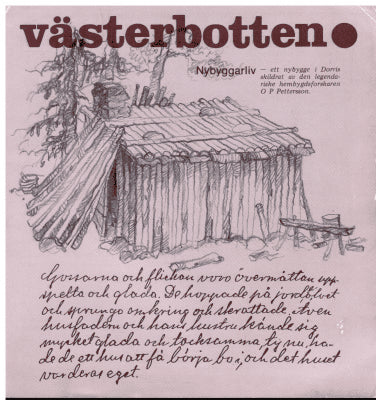 västerbotten
Nybyggarliv
— ett nybygge i Dorris
skildrat av den legenda-
riske hembygdsforskaren
O P Pettersson.
Gossarna och flickan voro övermåttan upp-
spelta och glada. De hoppade på jordgolvet
och sprungo omkring och skrattade. Även
husfadern och hans hustru kände sig
mycket glada och tacksamma, ty nu ha-
de de ett hus att få börja bo i, och det huset
var deras eget.